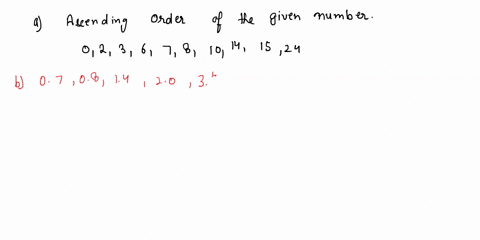 a) Ascending order of the given number.
0, 2, 3, 6, 7, 8, 10, 14, 15, 24
b) 0.7, 0.8, 1.4, 2.0, 3.